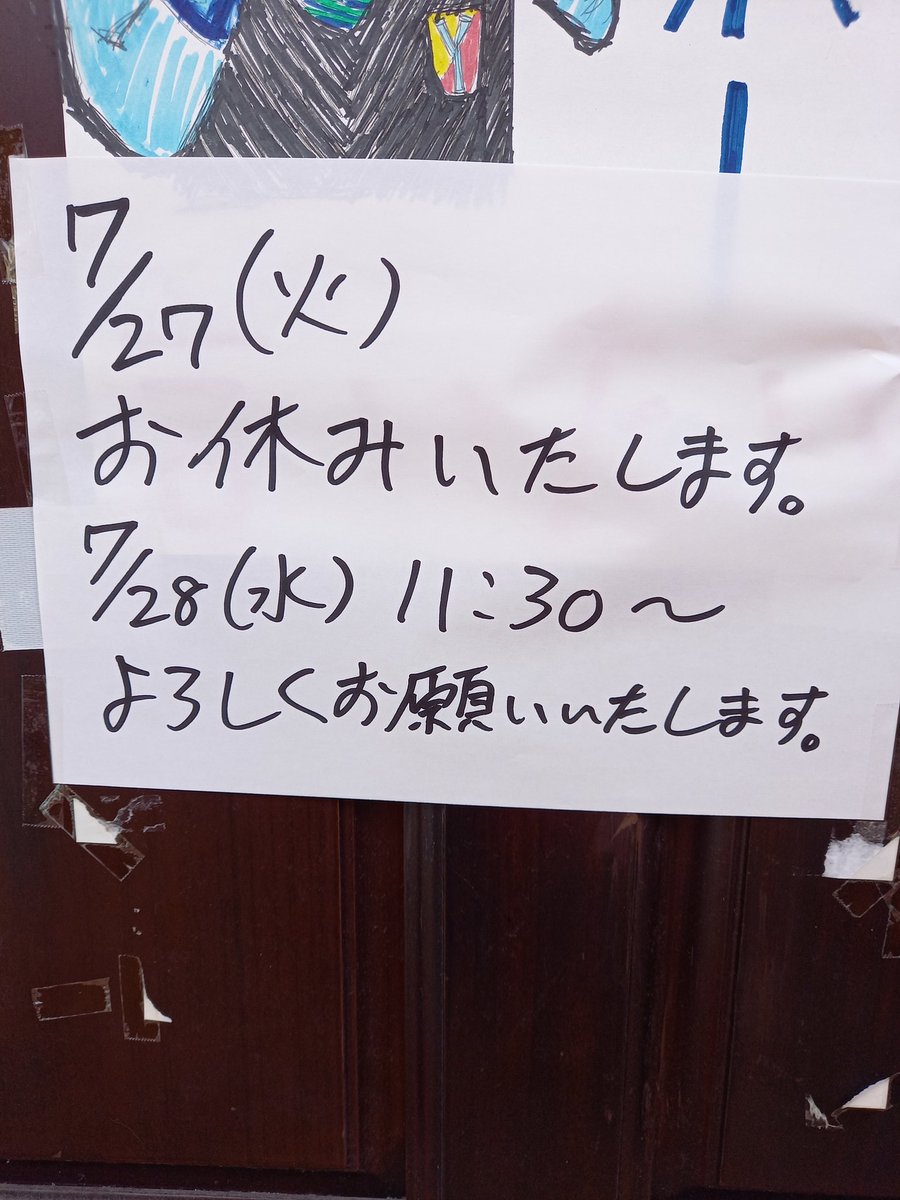 7/27(火)
お休みいたします。
7/28(水) 11:30〜
よろしくお願いいたします。